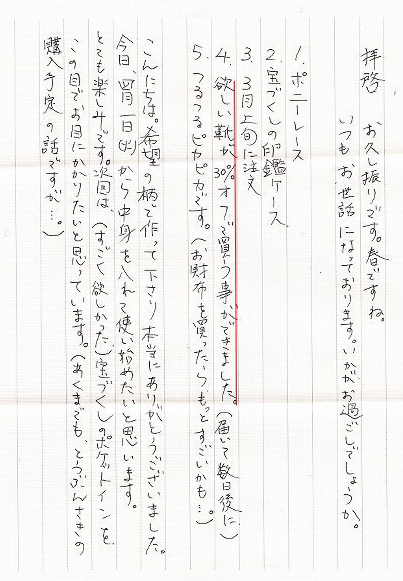 拝啓
お久し振りです。春ですね。
いつもお世話になっております。いかがお過ごしでしょうか。
1. ポニーレース
2. 宝づくしの印鑑ケース
3. 3月上旬に注文
4. 欲しい靴が30%オフで買う事ができました。(届いて数日後に)
5. つるつるピカピカです。(お財布を買ったらもっとすごいかも…。)
こんにちは。希望の柄で作って下さり本当にありがとうございました。
今日、四月一日(火)から中身を入れて使い始めたいと思います。
とても楽しみです。次回は、(すごく欲しかった)宝づくしのポケットインを
この目でお目にかかりたいと思っています。(あくまでも、とうぶんさきの
購入予定の話ですが…。)